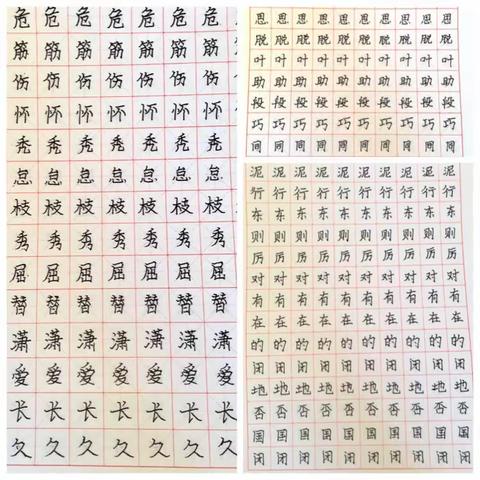 危 危 危 危 危 危 危
筋 筋 筋 筋 筋 筋 筋
伤 伤 伤 伤 伤 伤 伤
怀 怀 怀 怀 怀 怀 怀
秃 秃 秃 秃 秃 秃 秃
怠 怠 怠 怠 怠 怠 怠
枝 枝 枝 枝 枝 枝 枝
秀 秀 秀 秀 秀 秀 秀
屈 屈 屈 屈 屈 屈 屈
替 替 替 替 替 替 替
潇 潇 潇 潇 潇 潇 潇
爱 爱 爱 爱 爱 爱 爱
长 长 长 长 长 长 长
久 久 久 久 久 久 久
恩 恩 恩 恩 恩 恩 恩 恩 恩
脱 脱 脱 脱 脱 脱 脱 脱 脱
叶 叶 叶 叶 叶 叶 叶 叶 叶
助 助 助 助 助 助 助 助 助
段 段 段 段 段 段 段 段 段
巧 巧 巧 巧 巧 巧 巧 巧 巧
同 同 同 同 同 同 同 同 同
泥 泥 泥 泥 泥 泥 泥 泥 泥
行 行 行 行 行 行 行 行 行
东 东 东 东 东 东 东 东 东
则 则 则 则 则 则 则 则 则
厉 厉 厉 厉 厉 厉 厉 厉 厉
对 对 对 对 对 对 对 对 对
有 有 有 有 有 有 有 有 有
在 在 在 在 在 在 在 在 在
的 的 的 的 的 的 的 的 的
闭 闭 闭 闭 闭 闭 闭 闭 闭
地 地 地 地 地 地 地 地 地
否 否 否 否 否 否 否 否 否
国 国 国 国 国 国 国 国 国
闭 闭 闭 闭 闭 闭 闭 闭 闭